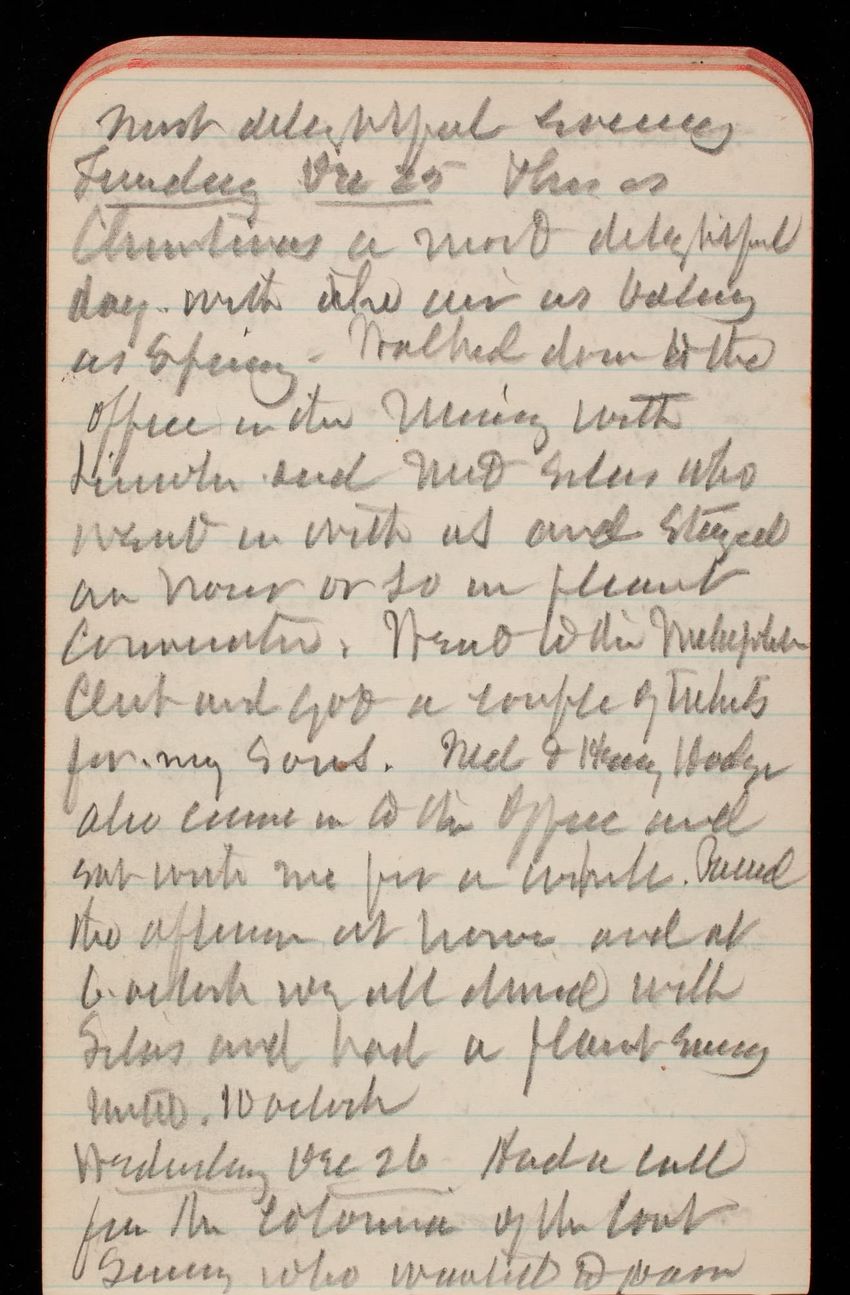 most delightful evening
Tuesday Dec 25 This is
Christmas a most delightful
day. with the air as balmy
as Spring - Walked down to the
office in the Morning with
Lincoln and Met Silas who
went in with us and stayed
an hour or so in pleasant
Conversation. Went to the Metropolitan
Club and got a couple of tickets
for my Sons. Ned & Henry Hodge
also came in to the Office and
sat with me for a while. Passed
the afternoon at home and at
6 oclock we all dined with
Silas and had a pleasant evening
until 10 oclock
Wednesday Dec 26 Had a call
from the of the Coast
Survey who wanted to